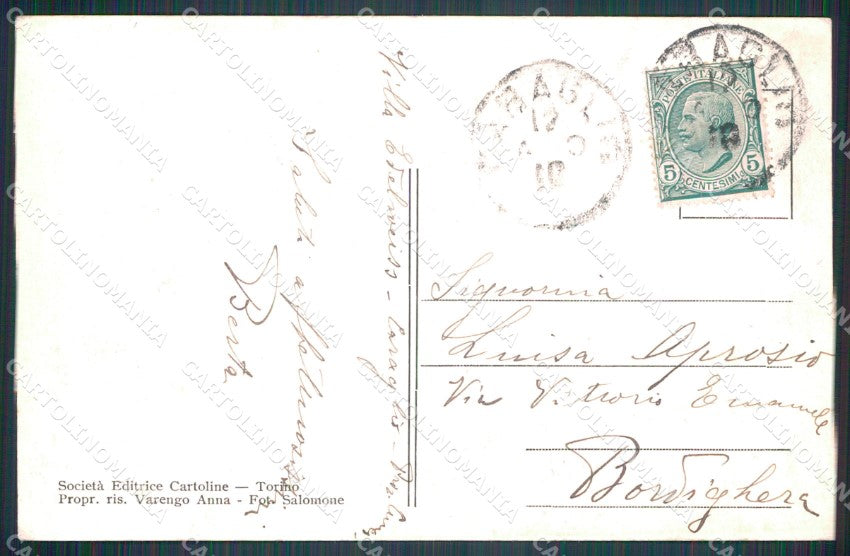 Saluti affettuosissimi
Berta
Villa Edelweiss - Caraglio -
CARAGLIO
12
10
CARAGLIO
POSTE ITALIANE
5 5
CENTESIMI
Signorina
Luisa Aprosio
Via Vittorio Emanuele
Bordighera
Società Editrice Cartoline — Torino
Propr. ris. Varengo Anna - Fot. Salomone
CARTOLINOMANIA